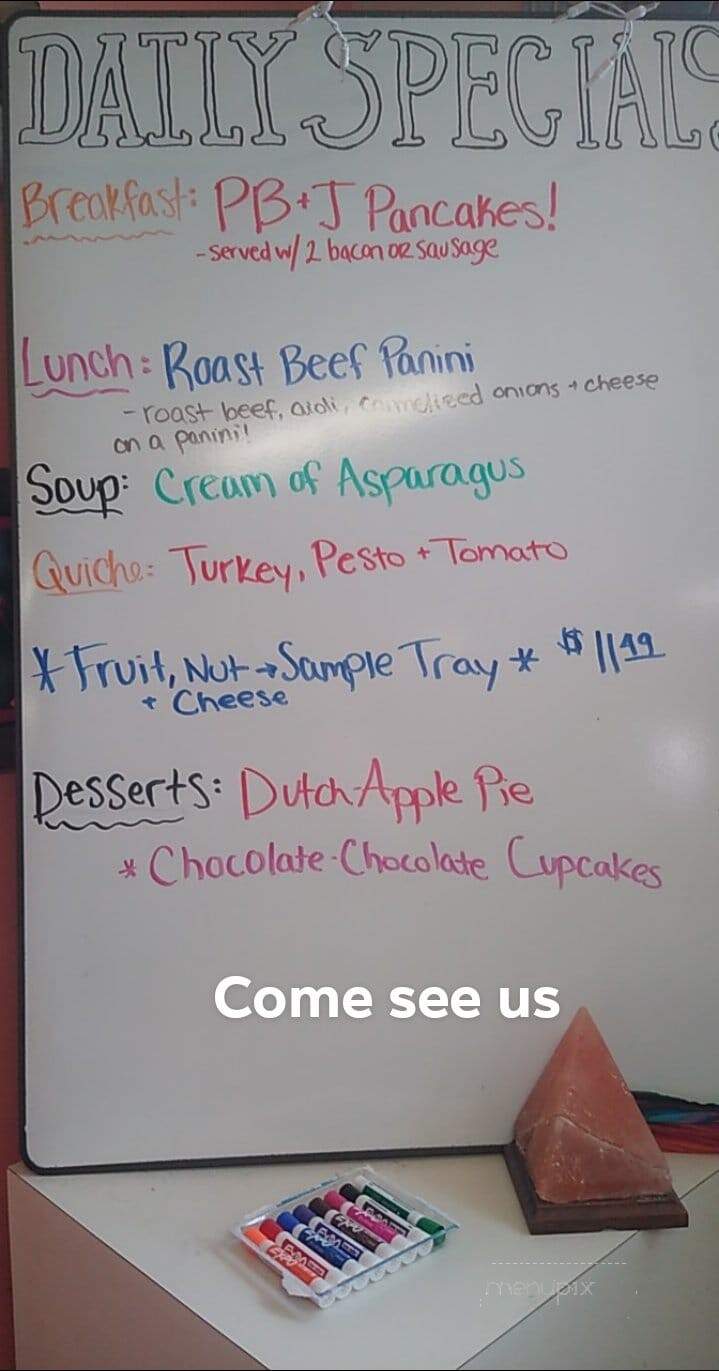 DAILY SPECIALS
Breakfast: PB+J Pancakes!
- served w/ 2 bacon or sausage
Lunch: Roast Beef Panini
- roast beef, aioli, carmelized onions + cheese
on a panini!
Soup: Cream of Asparagus
Quiche: Turkey, Pesto + Tomato
* Fruit, Nut → Sample Tray * $11.49
+ Cheese
Desserts: Dutch Apple Pie
* Chocolate-Chocolate Cupcakes
Come see us
EXPO EXPO EXPO EXPO
menupix